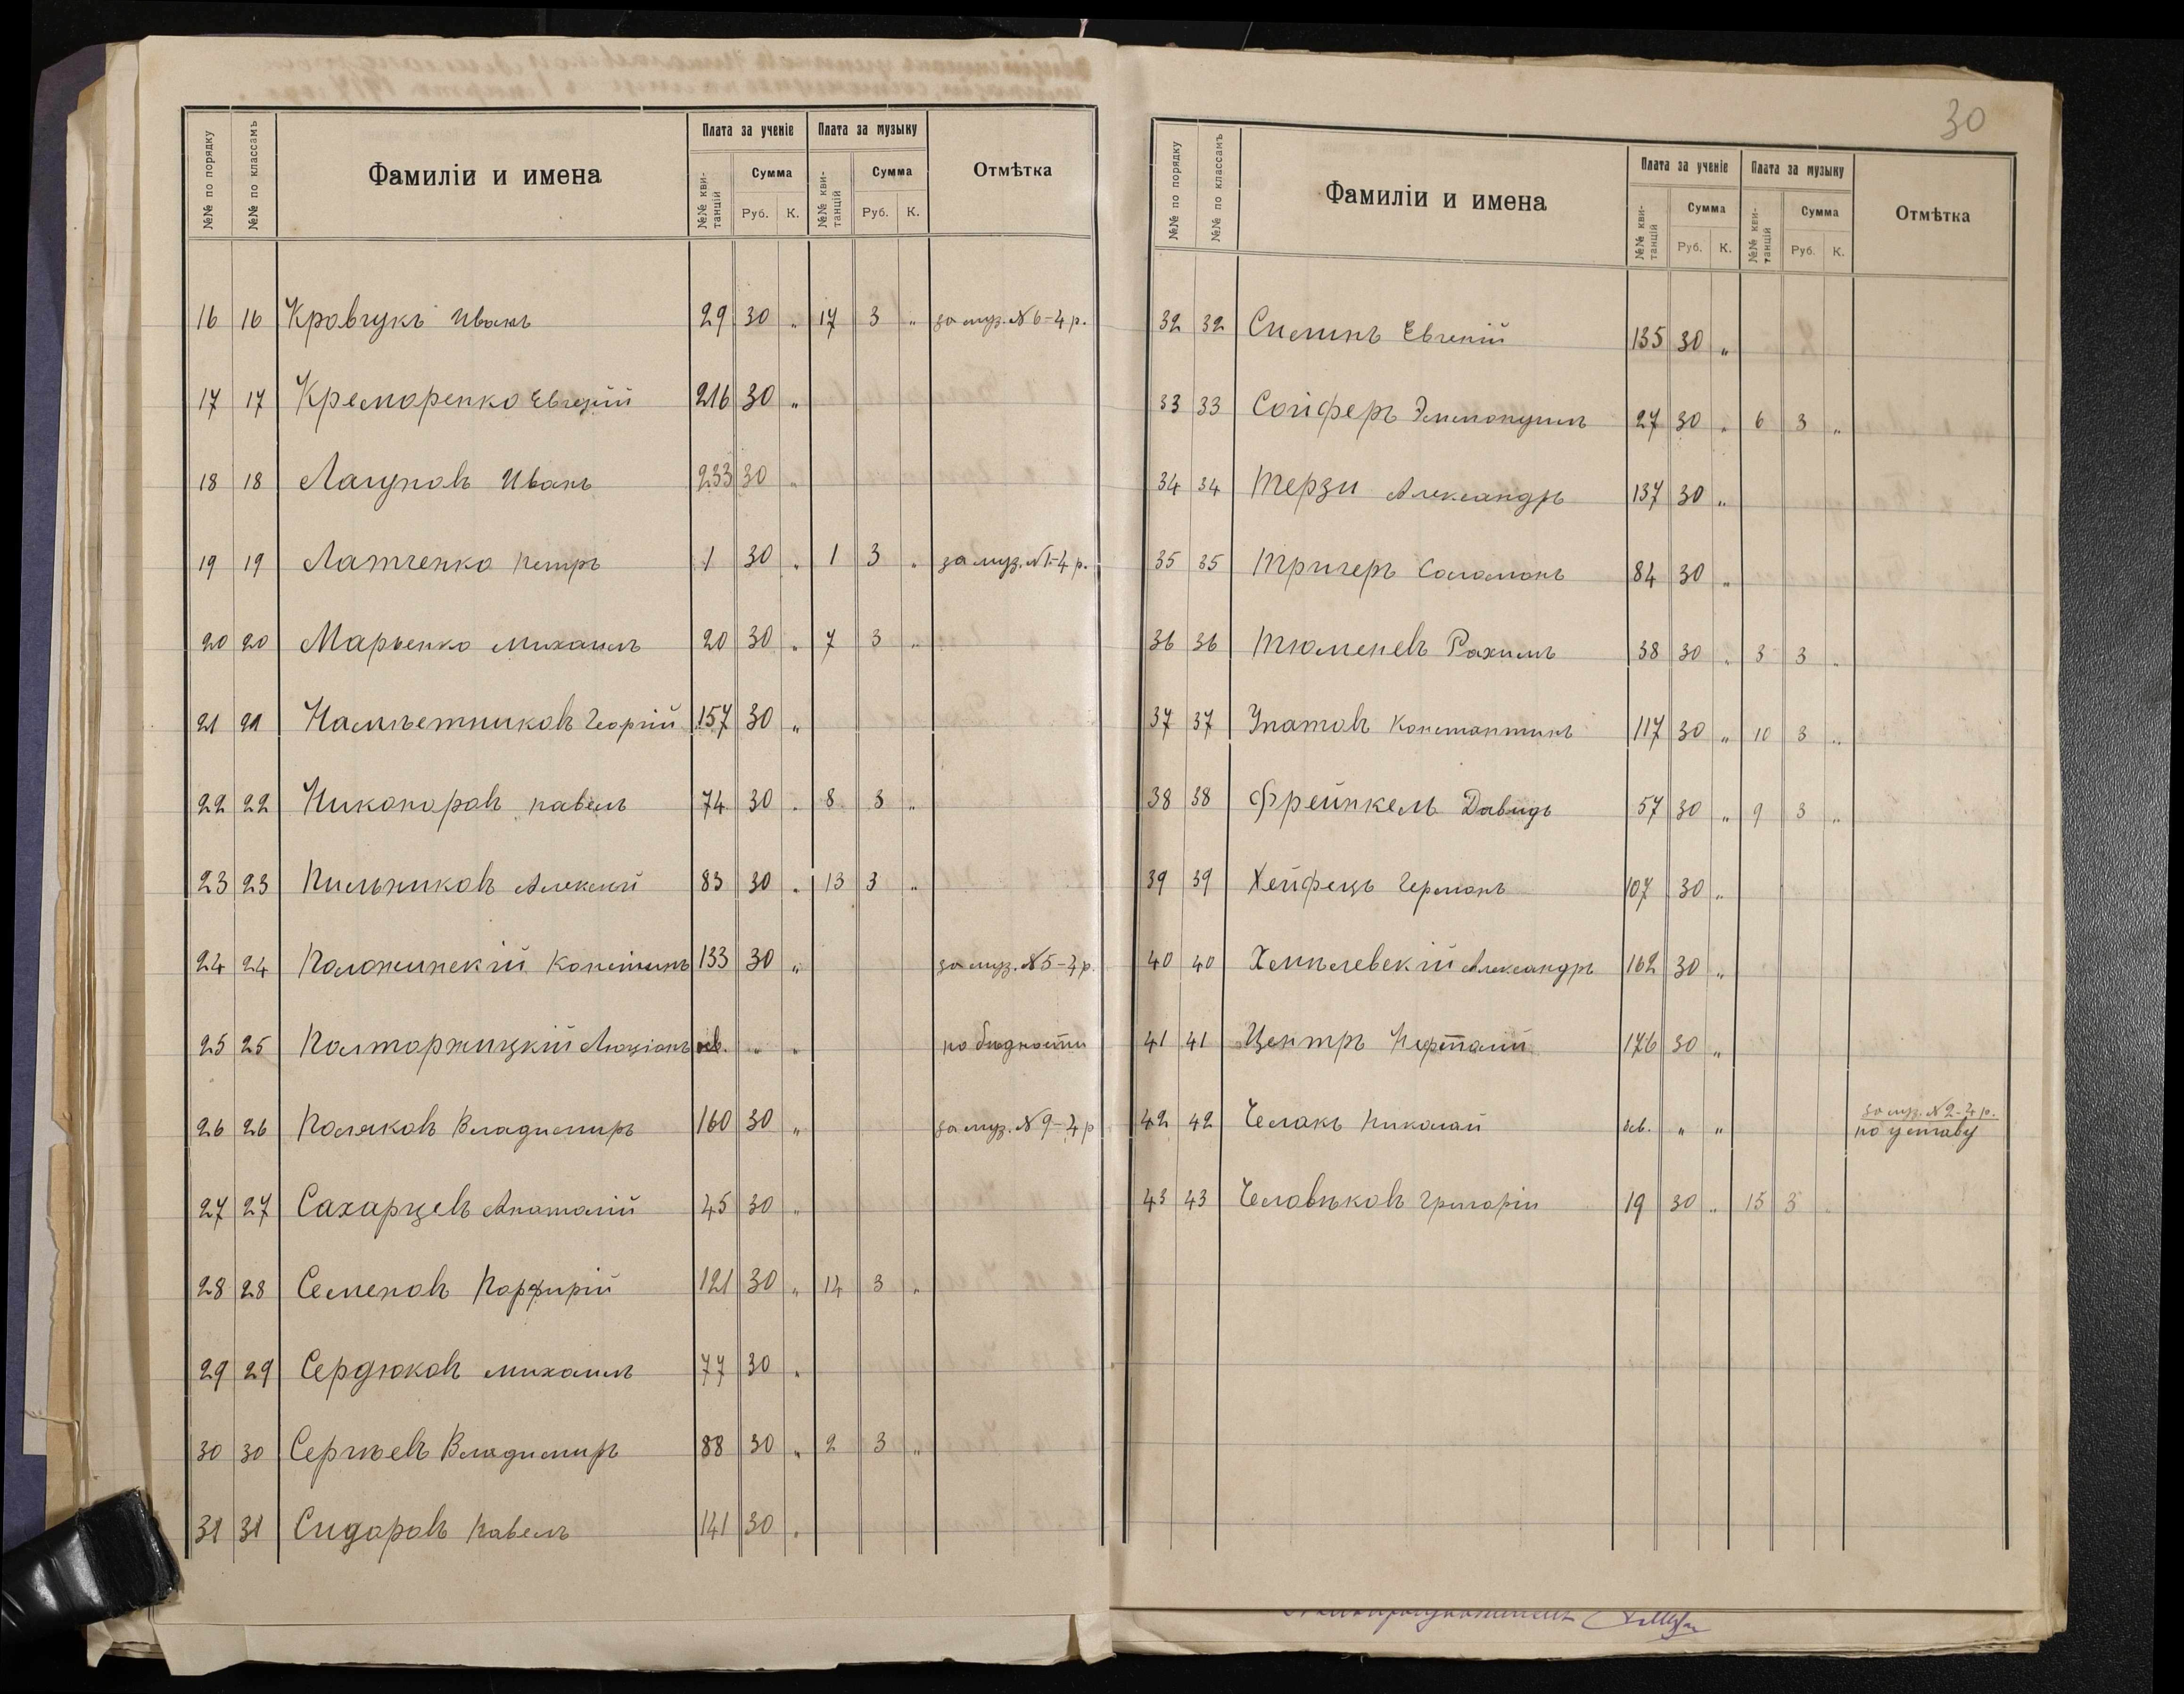 №№ по порядку №№ по классамъ Фамиліи и имена Плата за ученіе Плата за музыку Отмѣтка
№№ квитанцій Сумма №№ квитанцій Сумма
Руб. К. Руб. К.
16 16 Кравчукъ Иванъ 29 30 „ 17 3 „ за муз. №6-4 р.
17 17 Кременко Евгеній 216 30 „
18 18 Лагуновъ Иванъ 233 30 „
19 19 Латченко Петръ 1 30 „ 1 3 „ за муз. №1-4 р.
20 20 Марьенко Михаилъ 20 30 „ 7 3 „
21 21 Намѣтниковъ Георгій 157 30 „
22 22 Никоноровъ Павелъ 74 30 „ 8 3 „
23 23 Пильниковъ Алексей 83 30 „ 13 3 „
24 24 Положинскій Констинъ 133 30 „ за муз. №5-4 р.
25 25 Полторжицкій Люціанъ осв. „ „ по бѣдности
26 26 Поляковъ Владимиръ 160 30 „ за муз. №9-4 р
27 27 Сахарцевъ Анатолій 45 30 „
28 28 Семеновъ Порфирій 121 30 „ 14 3 „
29 29 Сердюковъ Михаилъ 77 30 „
30 30 Сергѣевъ Владимиръ 88 30 „ 2 3 „
31 31 Сидоровъ Павелъ 141 30 „
30
№№ по порядку №№ по классамъ Фамиліи и имена Плата за ученіе Плата за музыку Отмѣтка
№№ квитанцій Сумма №№ квитанцій Сумма
Руб. К. Руб. К.
32 32 Силинъ Евгеній 135 30 „
33 33 Сойферъ Эммануилъ 27 30 „ 6 3 „
34 34 Терзи Александръ 137 30 „
35 35 Тригеръ Соломонъ 84 30 „
36 36 Тюменевъ Рахилъ 38 30 „ 3 3 „
37 37 Упатовъ Константинъ 117 30 „ 10 3 „
38 38 Френкель Давидъ 57 30 „ 9 3 „
39 39 Хейфецъ Германъ 107 30 „
40 40 Хмѣлевскій Александръ 162 30 „
41 41 Центръ Нафталій 176 30 „
42 42 Челакъ Николай осв. „ „ за муз. №2-4 р.
по уставу
43 43 Человѣковъ Григорій 19 30 „ 15 3 „